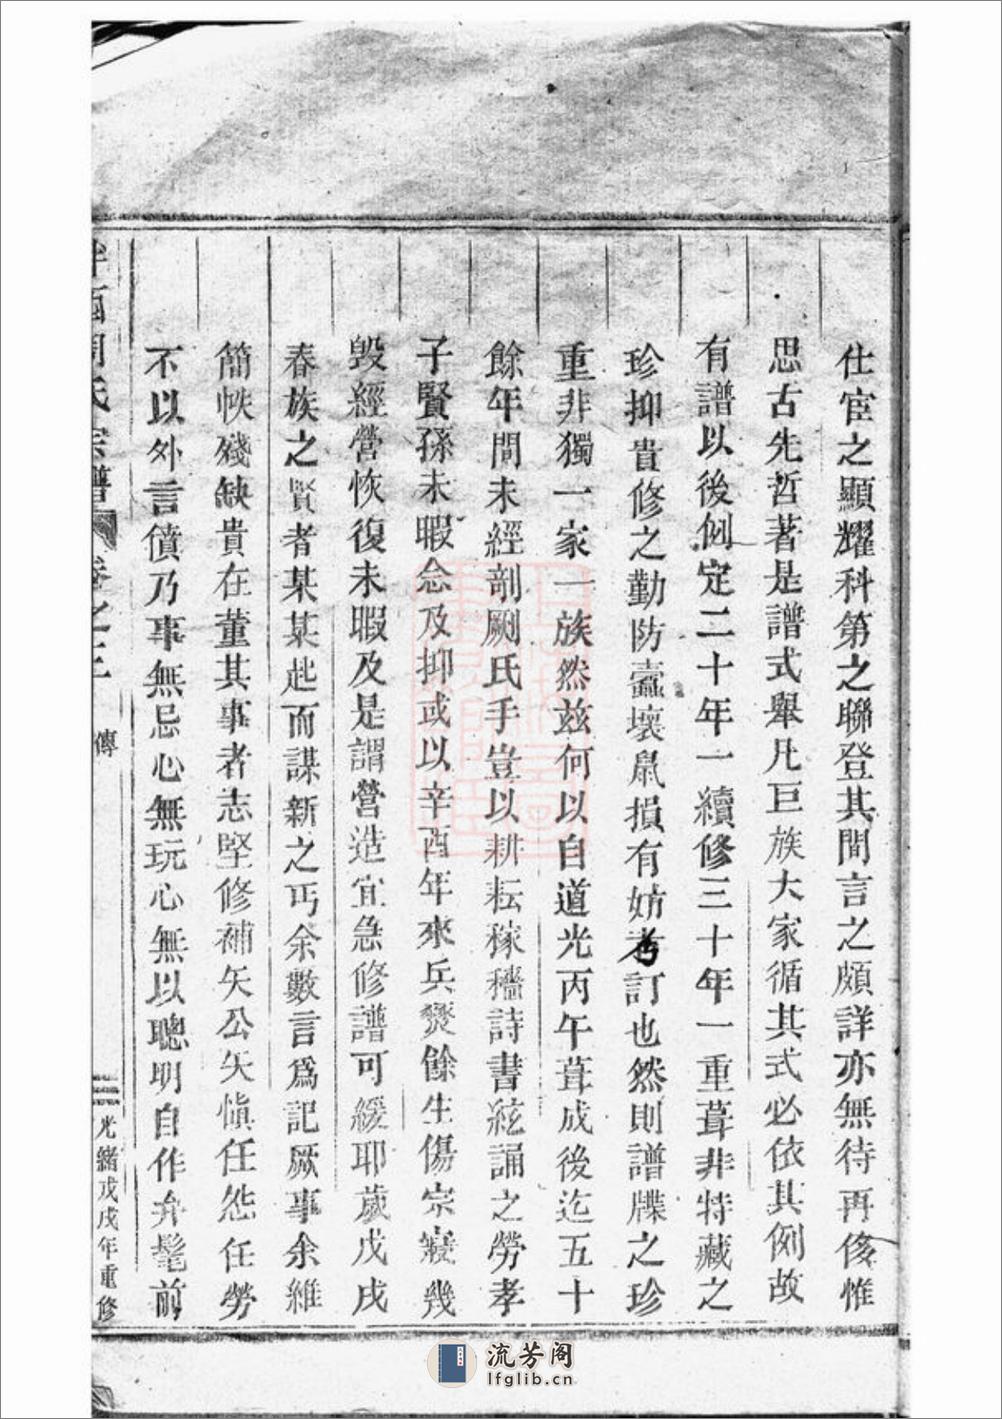 仕宦之顯耀科第之聯登其間言之頗詳亦無待再俟惟
思古先哲著是譜式舉凡巨族大家循其式必依其例故
有譜以後例定二十年一續修三十年一重葺非特藏之
珍抑貴修之勤防蠹壞鼠損有妨考訂也然則譜牒之珍
重非獨一家一族然兹何以自道光丙午葺成後迄五十
餘年間未經剞劂氏手豈以耕耘稼穡詩書絃誦之勞孝
子賢孫未暇念及抑或以辛酉年來兵燹餘生傷宗寢幾
毁經營恢復未暇及是謂營造宜急修譜可緩耶歲戊戌
春族之賢者某某起而謀新之丐余數言爲記厥事余維
簡帙殘缺貴在董其事者志堅修補矢公矢愼任怨任勞
不以外言僨乃事無忌心無玩心無以聰明自作弁髦前
西周氏宗譜 卷之三 傳 光緒戊戌年重修
流芳阁
lfglib.cn